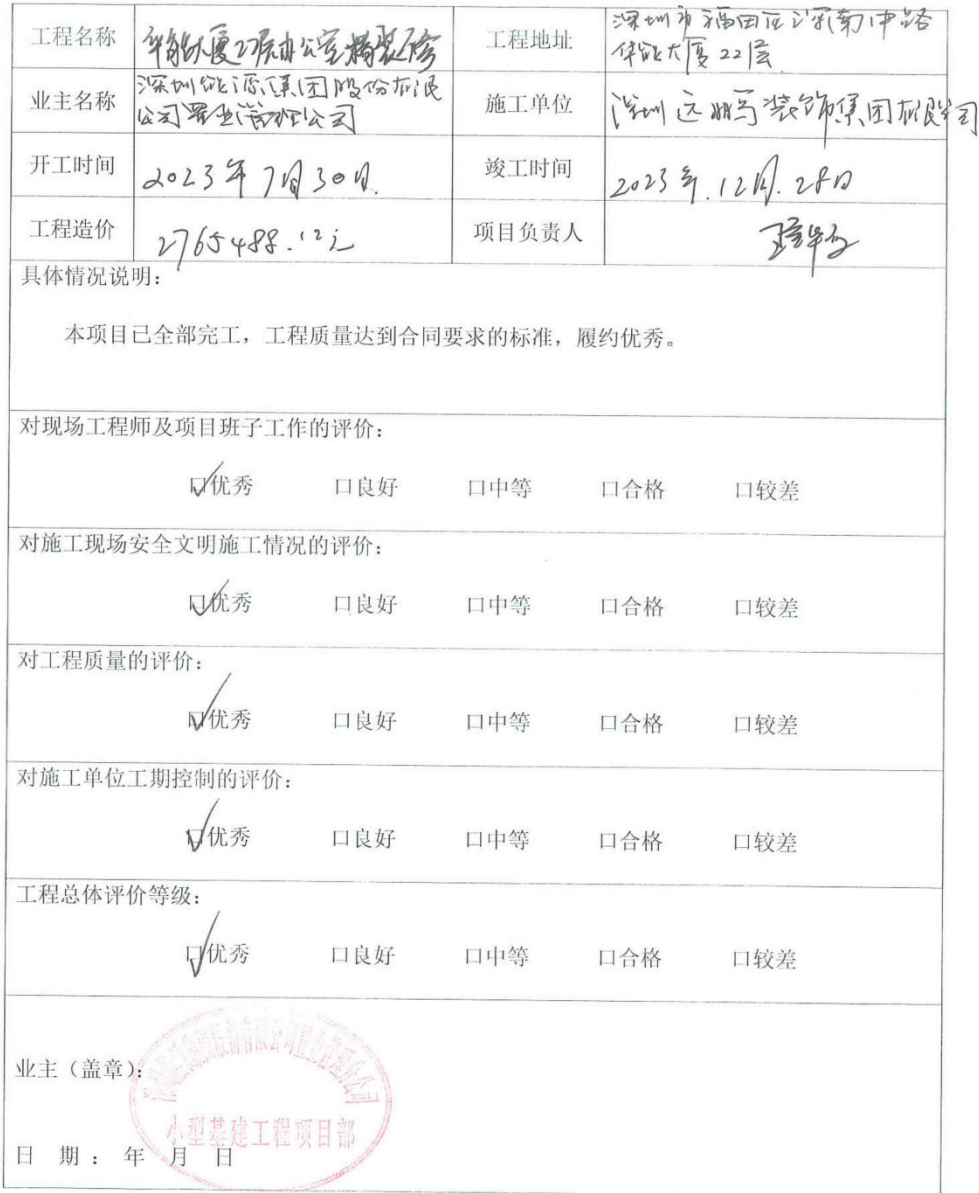 工程名称 华能大厦22层办公室精装修 工程地址 深圳市福田区深南中路
华能大厦22层
业主名称 深圳能源集团股份有限
公司置业管理公司 施工单位 深圳远鹏装饰集团有限公司
开工时间 2023年7月30日. 竣工时间 2023年.12月.28日
工程造价 2765488.12元 项目负责人
具体情况说明:
本项目已全部完工,工程质量达到合同要求的标准,履约优秀。
对现场工程师及项目班子工作的评价:
☑优秀 口良好 口中等 口合格 口较差
对施工现场安全文明施工情况的评价:
☑优秀 口良好 口中等 口合格 口较差
对工程质量的评价:
☑优秀 口良好 口中等 口合格 口较差
对施工单位工期控制的评价:
☑优秀 口良好 口中等 口合格 口较差
工程总体评价等级:
☑优秀 口良好 口中等 口合格 口较差
业主(盖章):
小型基建工程项目部
日 期: 年 月 日